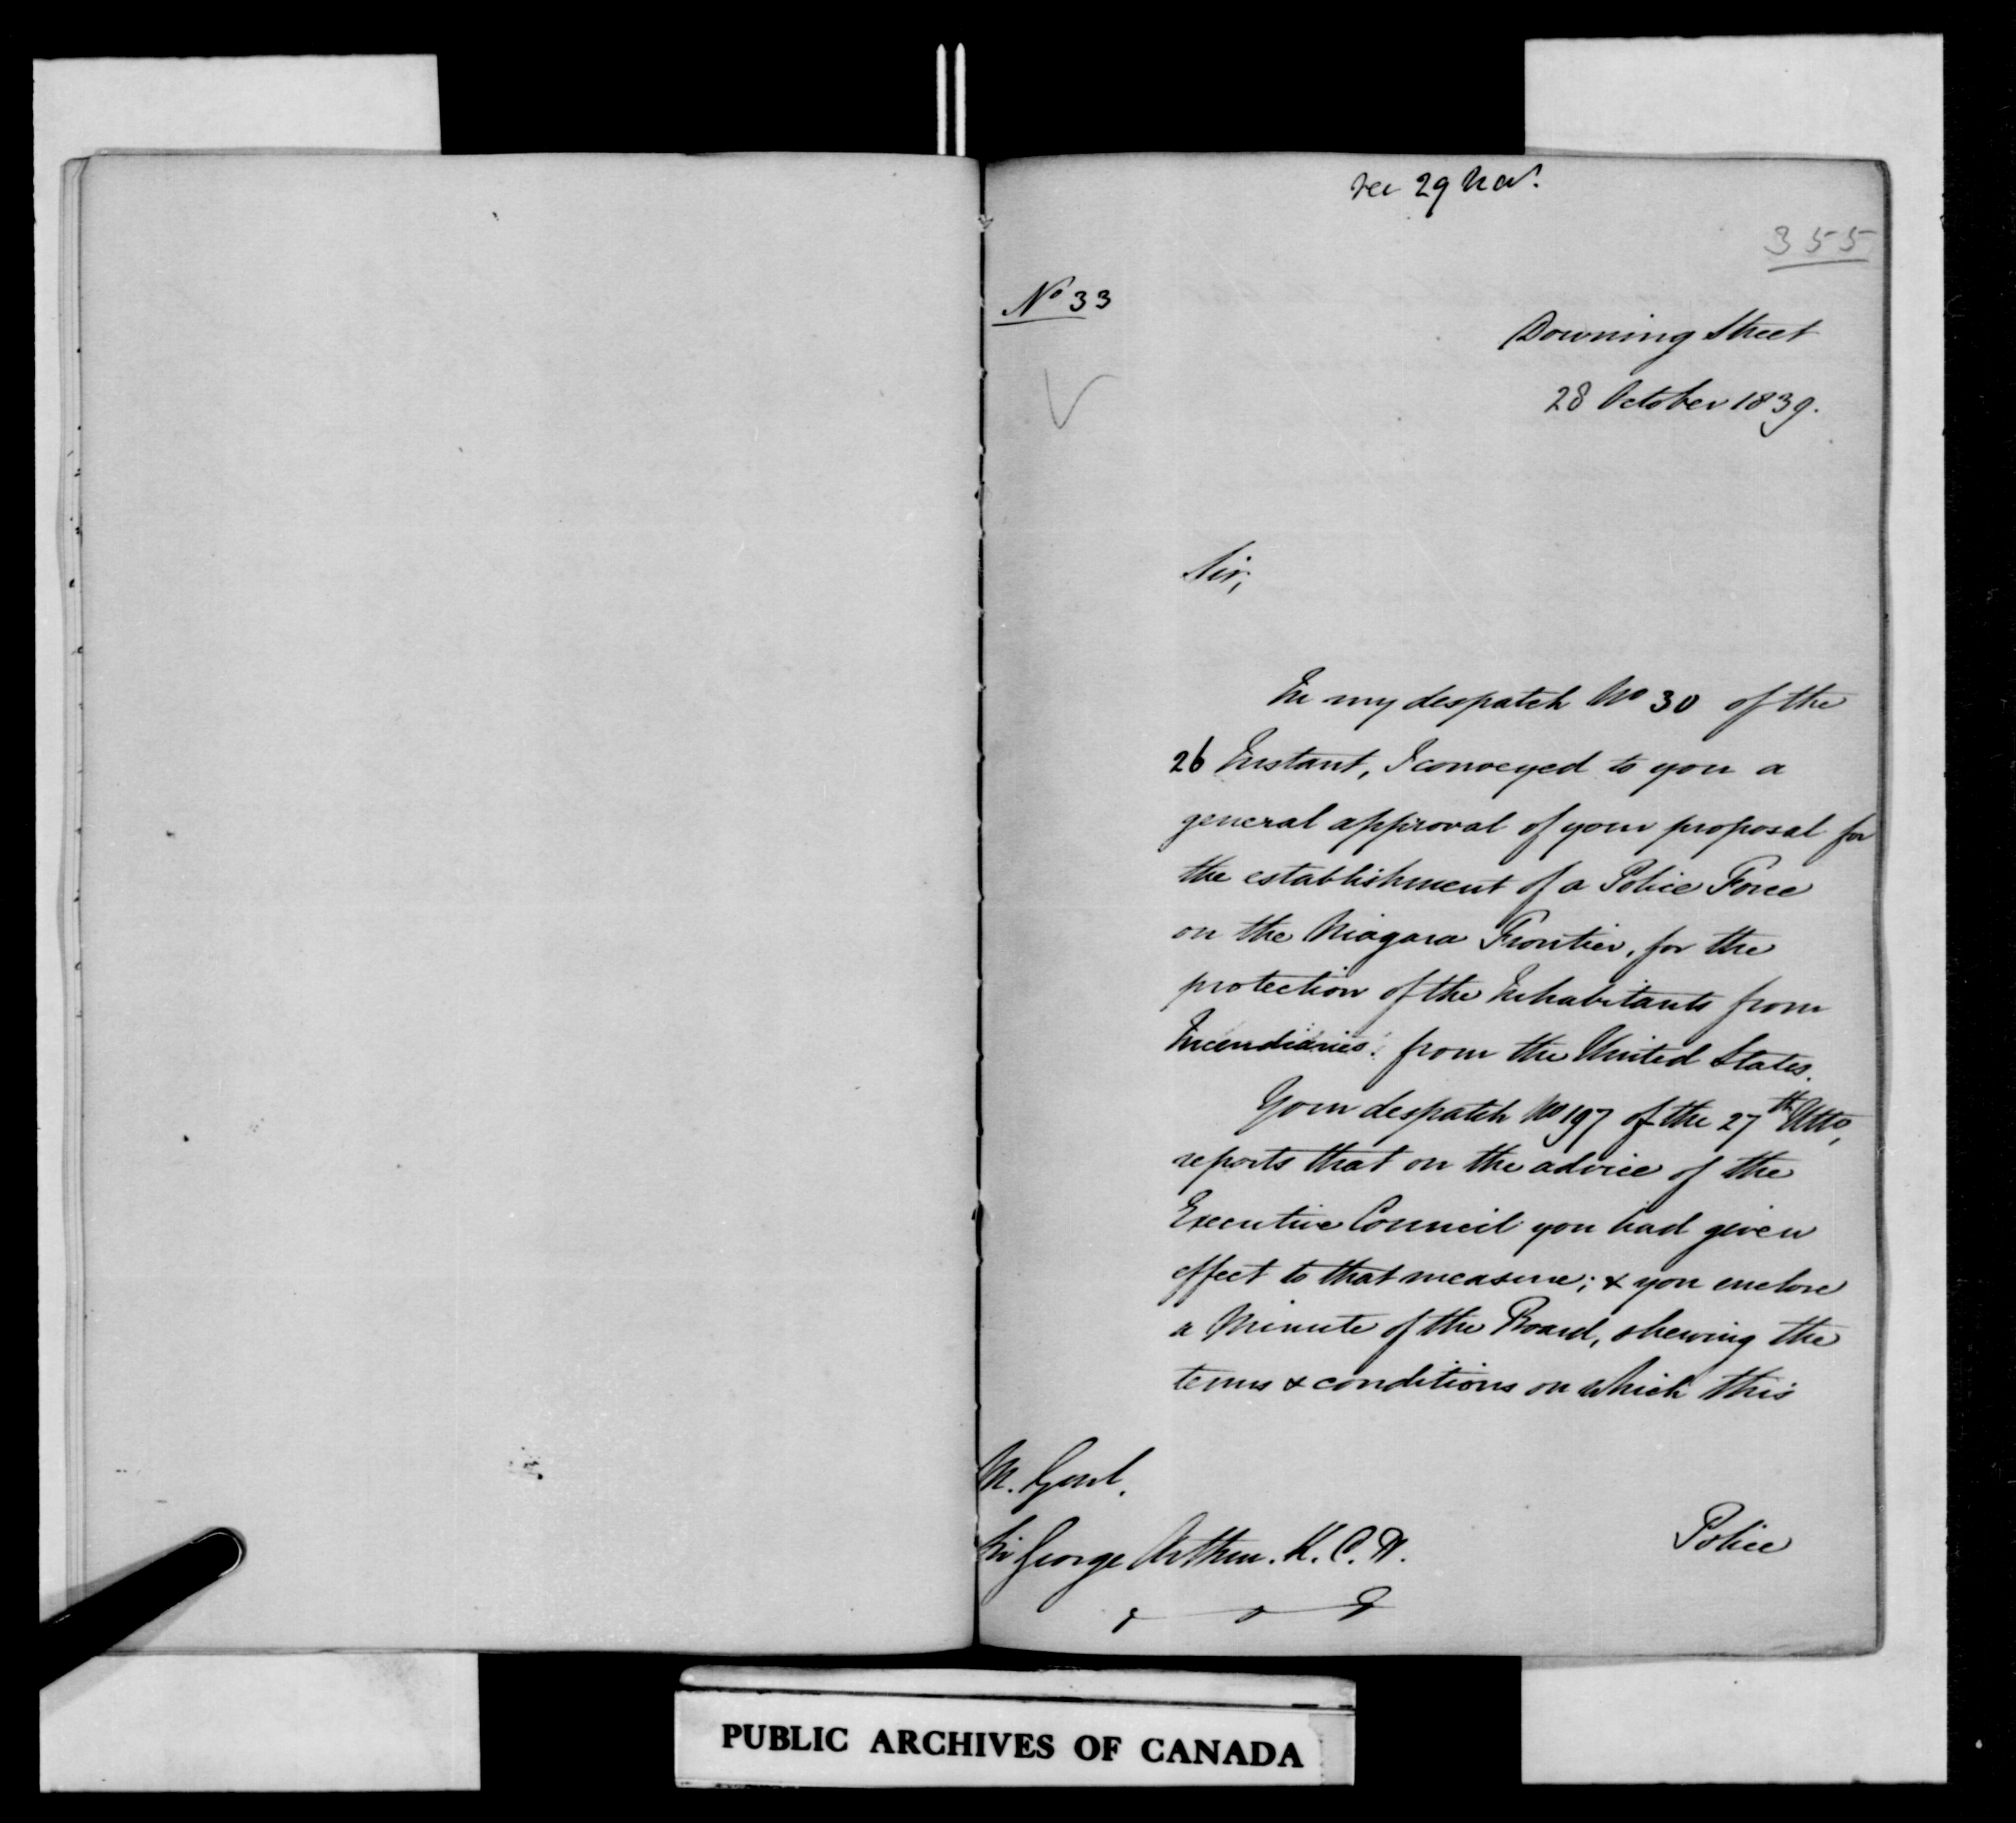 rec 29 Nov.
355
No 33
Downing Street
28 October 1839.
Sir,
In my despatch No 30 of the
26 Instant, I conveyed to you a
general approval of your proposal for
the establishment of a Police Force
on the Niagara Frontier, for the
protection of the Inhabitants from
Incendiaries from the United States.
Your despatch No 197 of the 27th Ulto,
reports that on the advice of the
Executive Council you had given
effect to that measure; & you enclose
a Minute of the Board, shewing the
terms & conditions on which this
Police
M. Genl.
Sir George Arthur. K. C. H.
PUBLIC ARCHIVES OF CANADA